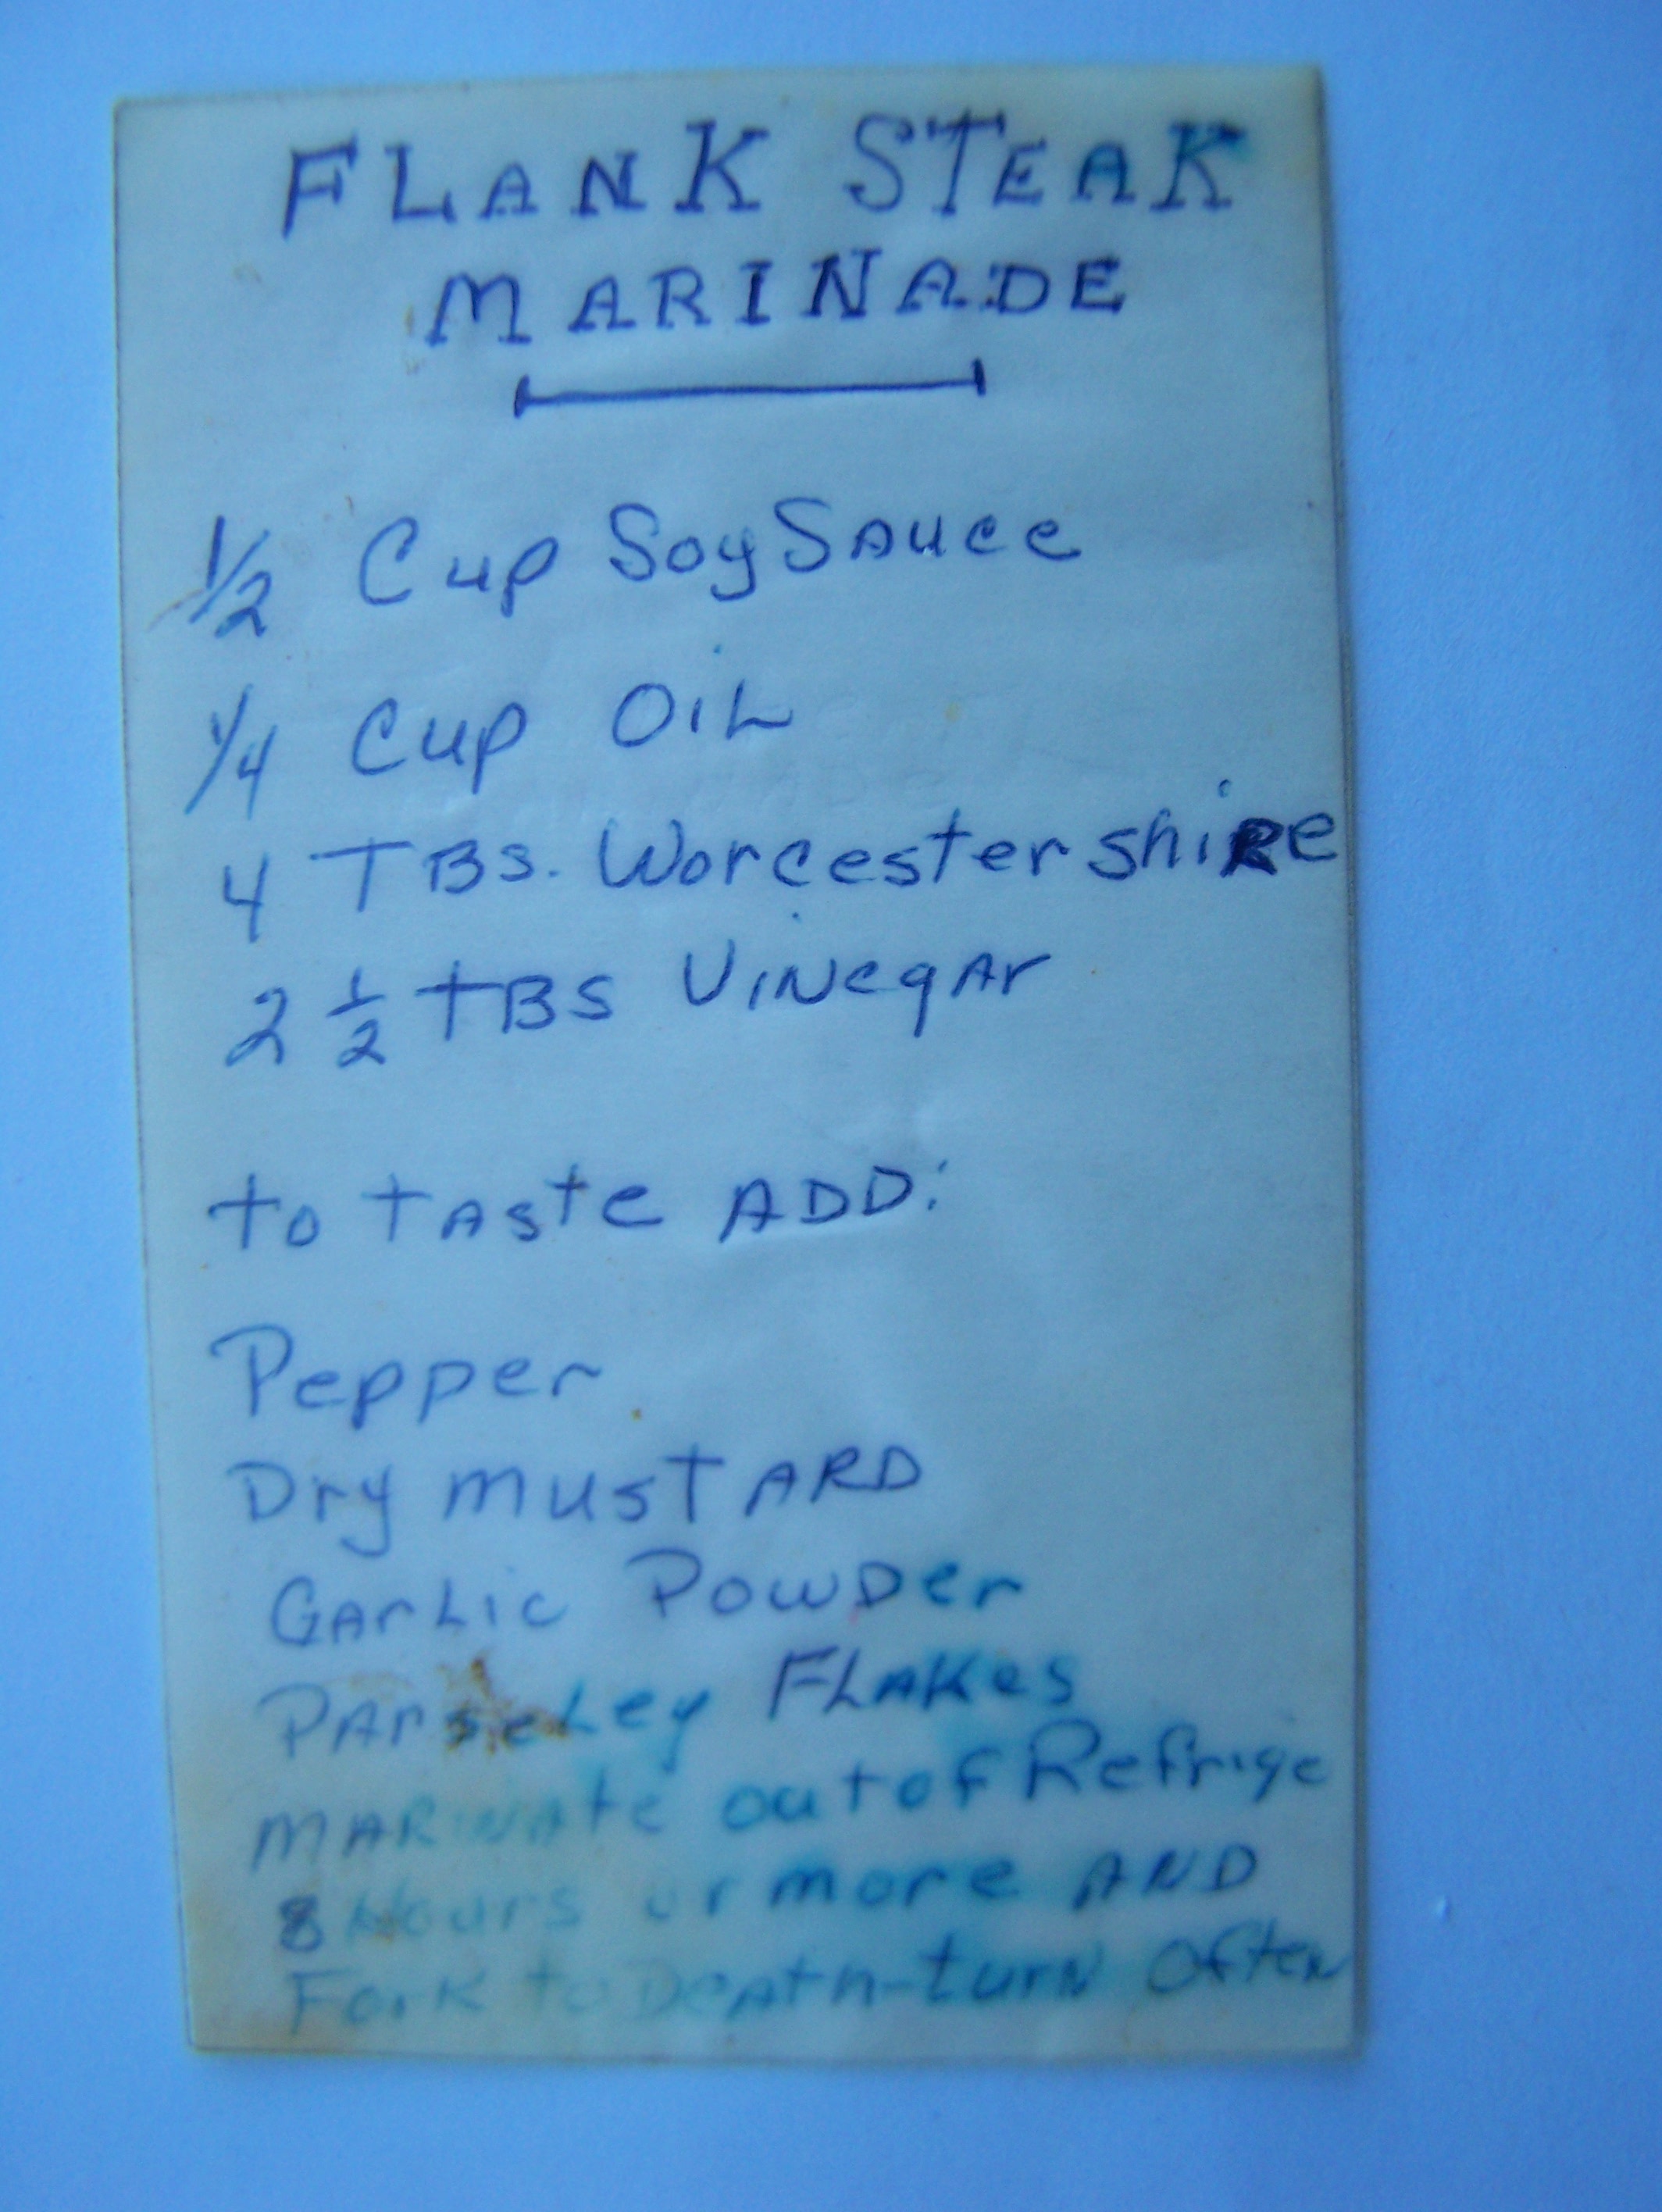 FLANK STEAK
MARINADE
1/2 Cup Soy Sauce
1/4 Cup OiL
4 TBS. Worcestershire
2 1/2 TBS Vinegar
to taste ADD:
Pepper
Dry MustARD
GarLic Powder
ParseLey FLAKes
MARiNAte out of Refrige
8 Hours or more AND
Fork to Death-turn often